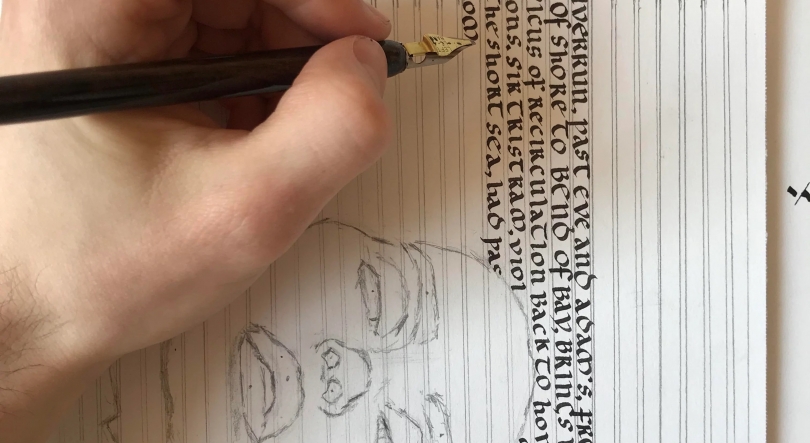 iverrun, past eve and adam's, fro
of shore to bend of bay, brings
icus of recirculation back to how
ons, sir tristram, viol
he short sea, had pas